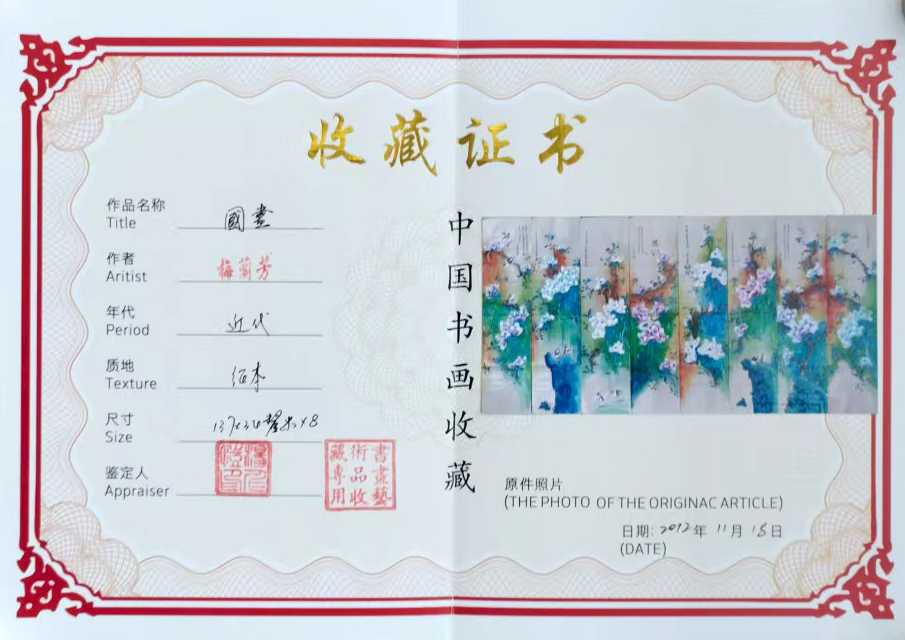 收藏证书
作品名称
Title
國畫
作者
Aritist
梅蘭芳
年代
Period
近代
质地
Texture
纸本
尺寸
Size
137x34厘米x8
鉴定人
Appraiser
書畫藝
術品收
藏專用
中国书画收藏
原件照片
(THE PHOTO OF THE ORIGINAC ARTICLE)
日期: 2012年 11月 18日
(DATE)